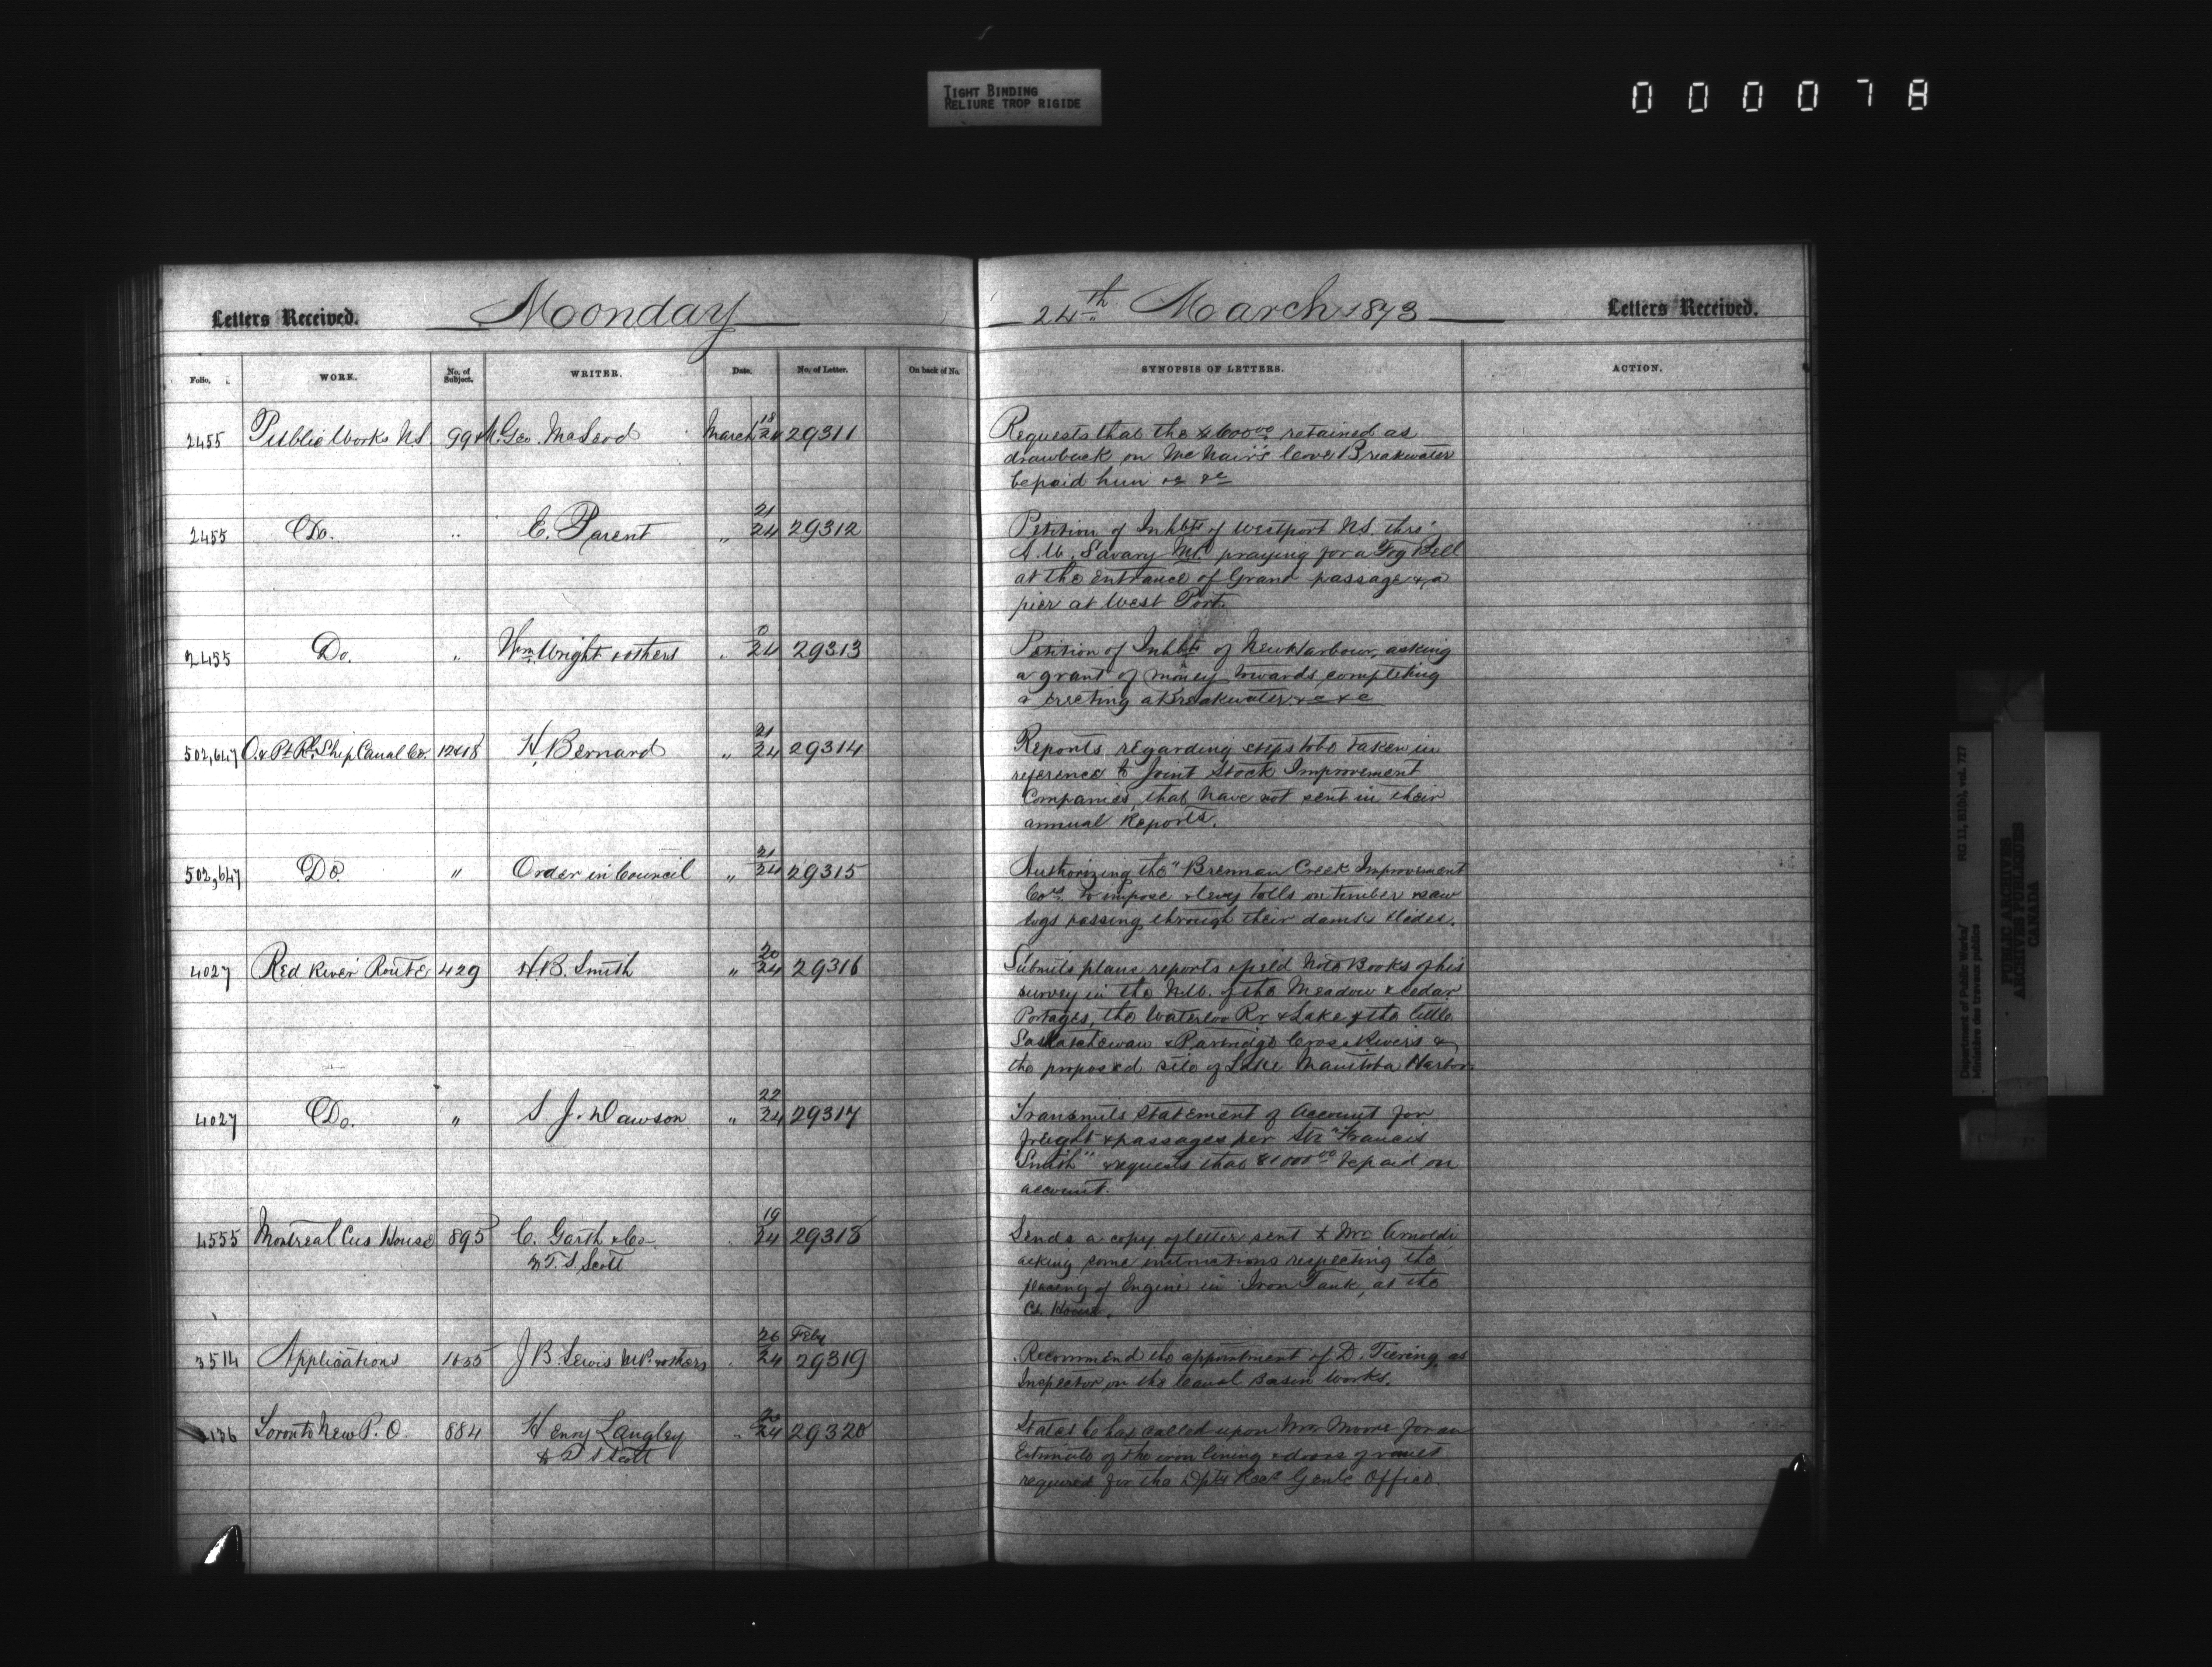 TIGHT BINDING
RELIURE TROP RIGIDE
000078
Letters Received.
Moonday
24th March 1873
Letters Received.
Folio. WORK. No. of Subject. WRITER. Date. No. of Letter. On back of No. SYNOPSIS OF LETTERS. ACTION.
2455 Public Works N.S. 994 Geo. McLeod March 18/24 29311
Requests that the $600.00 retained as
drawback on McNair's Cove Breakwater
be paid him &c &c
2455 Do. " E. Parent " 21/24 29312
Petition of Inhbts of Westport NS thro'
A.W. Savary MP praying for a Fog Bell
at the entrance of Grand passage & a
pier at West Port.
2455 Do. " Wm. Wright & others " 0/24 29313
Petition of Inhbts of New Harbour, asking
a grant of money towards completing
a erecting a Breakwater &c &c
502,647 O. & Pt. Rl. Ship Canal Co. 12418 H. Bernard " 21/24 29314
Reports regarding steps to be taken in
reference to Joint Stock Improvement
Companies, that have not sent in their
annual Reports.
502,647 Do. " Order in Council " 21/24 29315
Authorizing the "Brennan Creek Improvement
Coy. to impose & levy tolls on timber & saw
logs passing through their dams & slides.
4027 Red River Route 429 H.B. Smith " 20/24 29316
Submits plans reports & field Note Books of his
survey in the N.W. of the Meadow & Cedar
Portages, the Waterloo Rr & Lake & the little
Saskatchewan & Partridge Crop Rivers &
the proposed site of Lake Manitoba Harbor.
4027 Do. " S. J. Dawson " 22/24 29317
Transmits statement of Account for
freight & passages per Str "Francis
Smith" & requests that $1000.00 be paid on
account.
4555 Montreal Cus House 895 C. Garth & Co. 19/24 29318
to T. S. Scott
Sends a copy of letter sent to Mr. Arnoldi
asking some instructions respecting the
placing of Engine in Iron Tank, at the
Cs. House.
3514 Applications 1035 J B. Lewis M.P. & others 26 Feby/24 29319
Recommend the appointment of D. Tiering as
Inspector on the Canal Basin Works.
136 Toronto New P.O. 884 Henry Langley " 20/24 29320
to T S Scott
States he has called upon Mr. Moore for an
Estimate of the iron lining & doors of vault
required for the Dpty Recr Genls Office.
Department of Public Works/
Ministère des travaux publics
RG 11, B1(b), vol. 727
PUBLIC ARCHIVES
ARCHIVES PUBLIQUES
CANADA